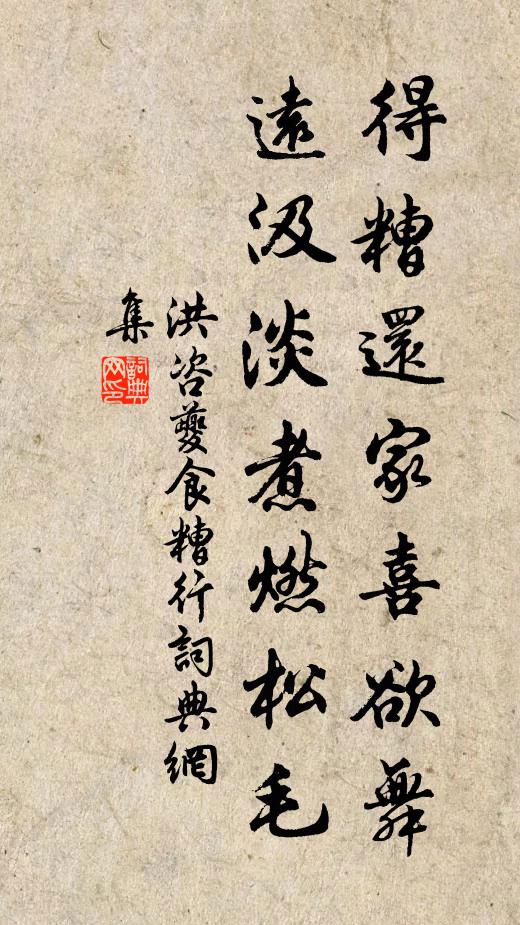 得糟還家喜欲舞
遠汲淡煮燃松毛
洪咨夔食糟行詞典網
集
詞典
网印